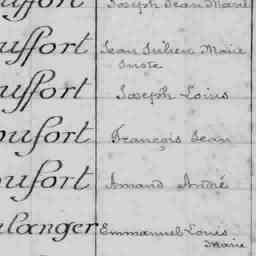 uffort Joseph Jean Marie
uffort Jean Julien Marie
uffort Joseph Louis
oufort François Jean
oufort Amand André
ulanger Emmanuel Louis
Marie